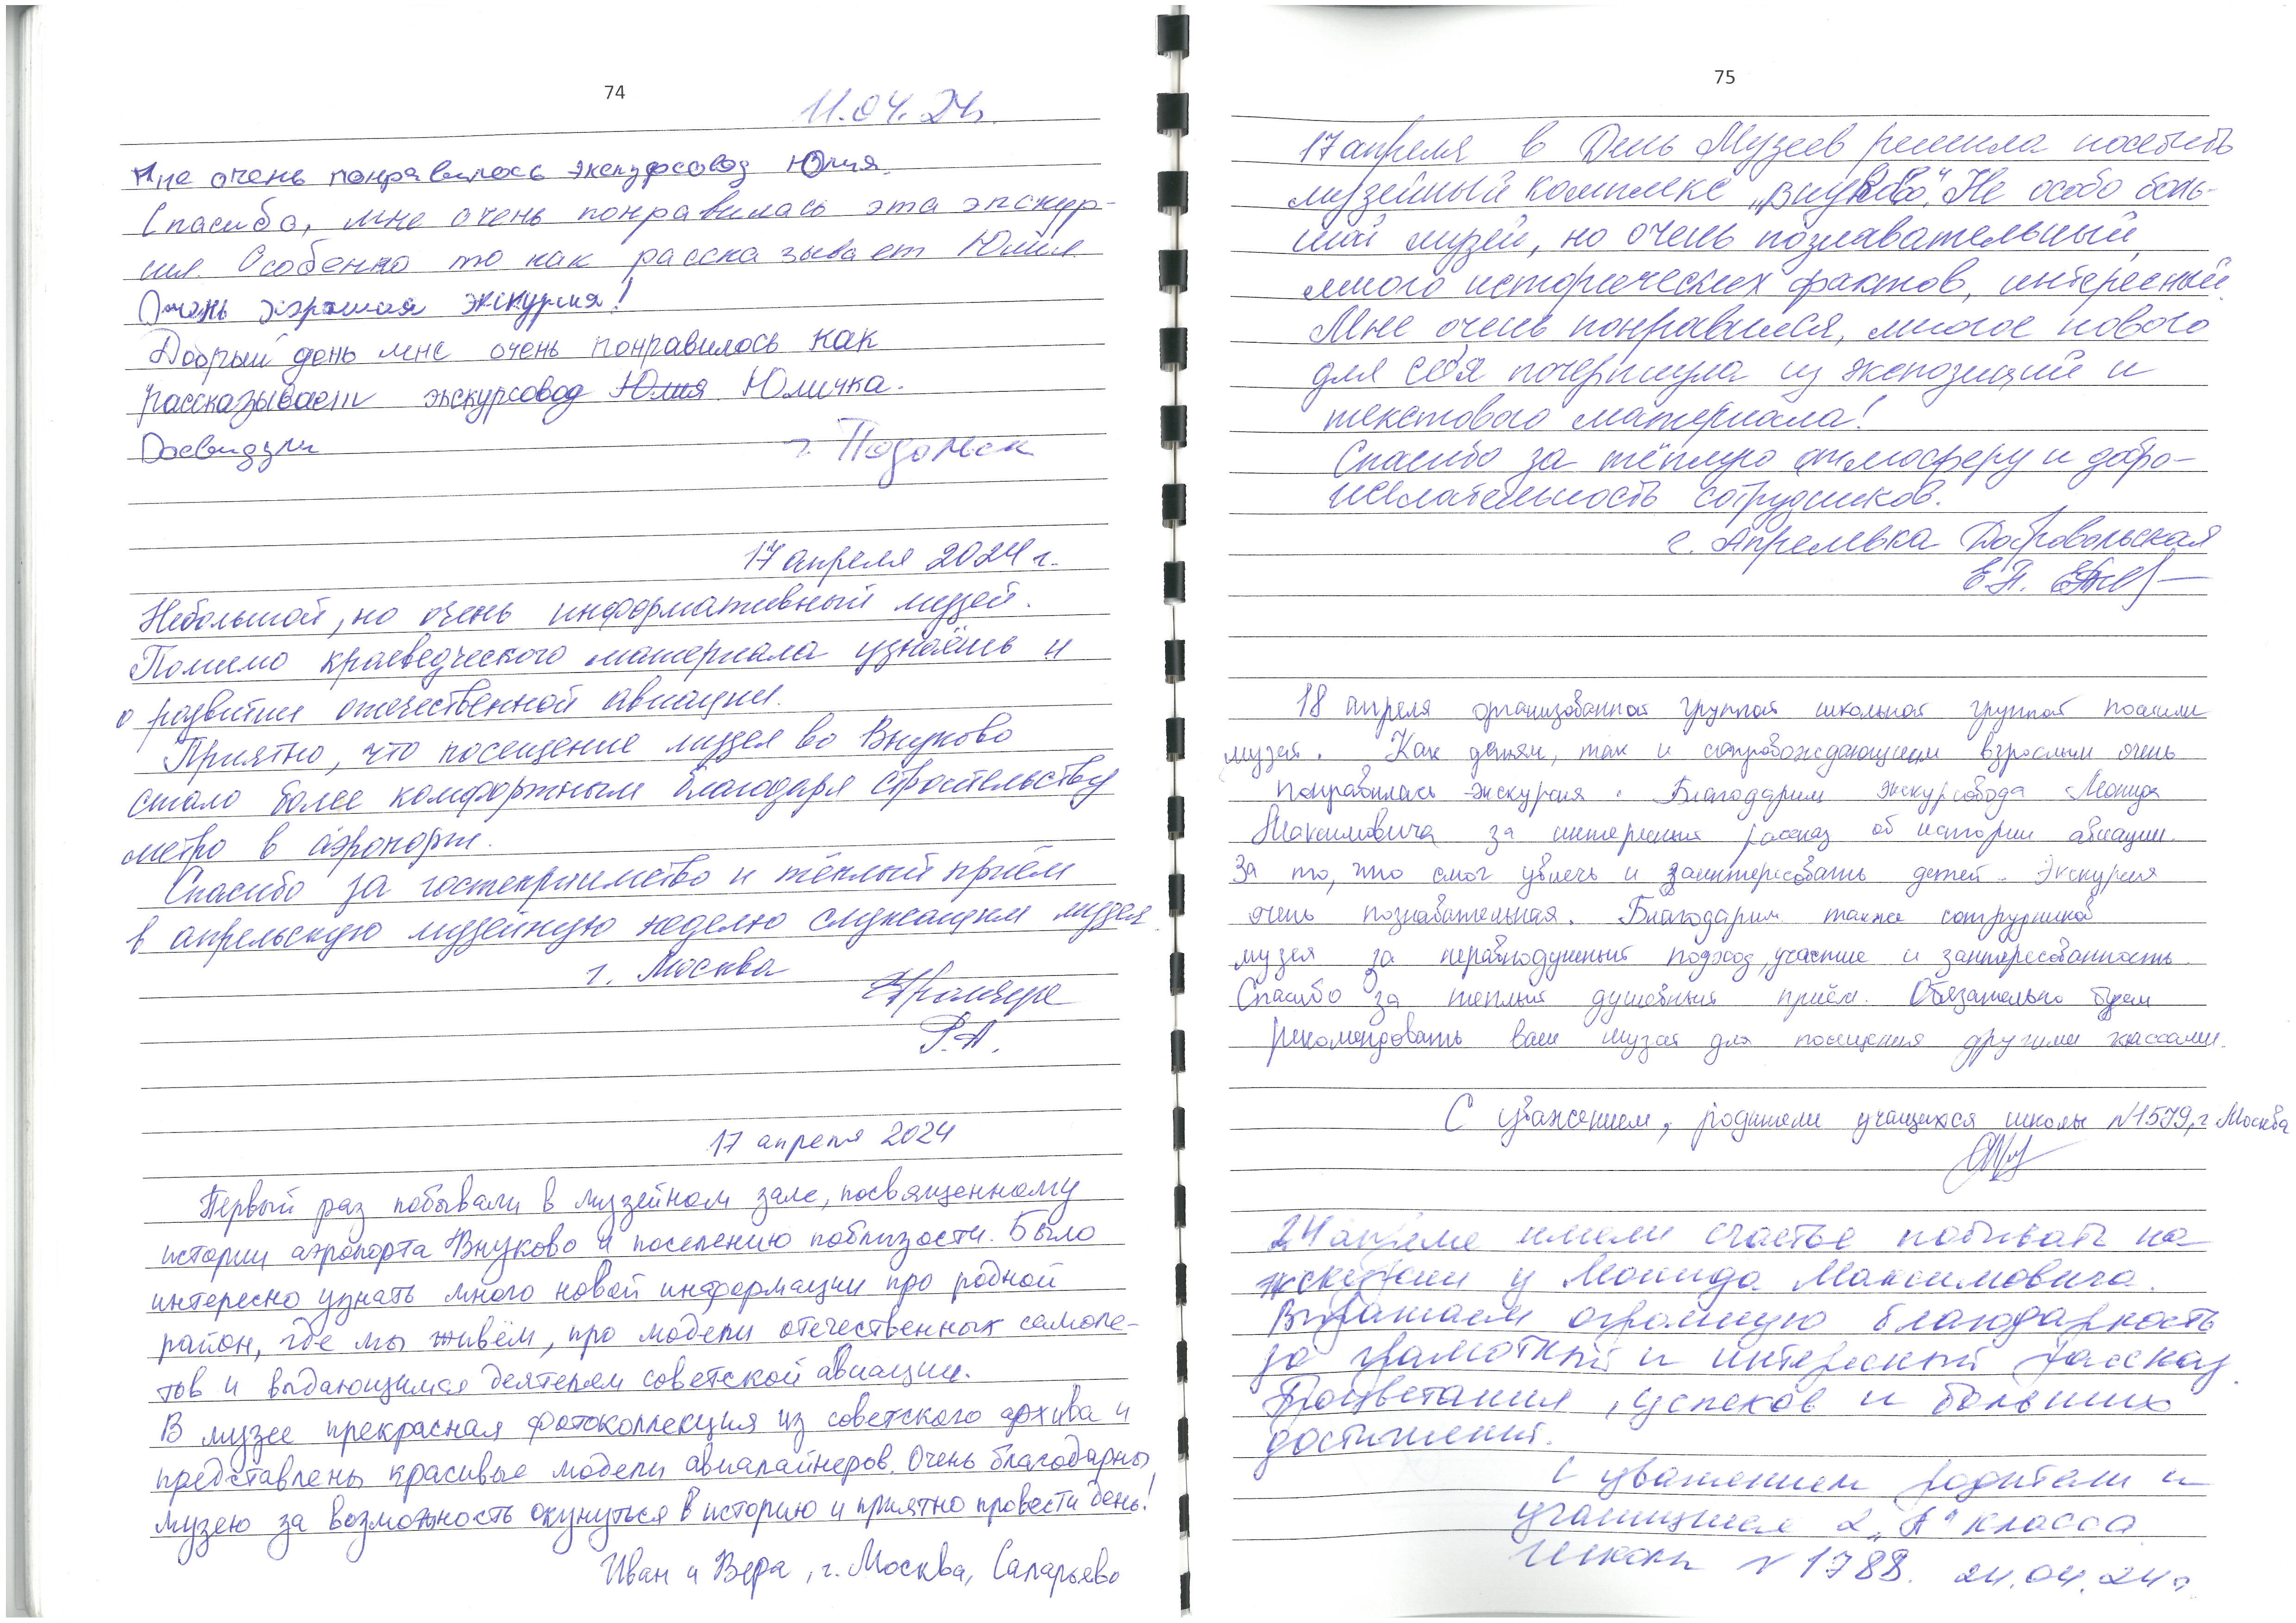 74
11.04.24г.
Мне очень понравилось экскурсовод Юлия.
Спасибо, мне очень понравилась эта экскур-
сия. Особенно то как рассказывает Юлия.
Очень хорошая экскурсия!
Добрый день мне очень понравилось как
рассказывает экскурсовод Юлия Юличка.
Досвидули
г. Подольск
17 апреля 2024 г.
Небольшой, но очень информативный музей.
Помимо краеведческого материала узнаёшь и
о развитии отечественной авиации.
Приятно, что посещение музея во Внуково
стало более комфортным благодаря строительству
метро в аэропорт.
Спасибо за гостеприимство и тёплый приём
в апрельскую музейную неделю служащим музея.
г. Москва
Р.А.
17 апреля 2024
Первый раз побывали в музейном зале, посвященному
истории аэропорта Внуково и поселению поблизости. Было
интересно узнать много новой информации про родной
район, где мы живём, про модели отечественных самоле-
тов и выдающимся деятелям советской авиации.
В музее прекрасная фотоколлекция из советского архива и
представлены красивые модели авиалайнеров. Очень благодарны
музею за возможность окунуться в историю и приятно провести день!
Иван и Вера, г. Москва, Саларьево
75
17 апреля в День Музеев решила посетить
музейный комплекс „Внуково". Не особо боль-
шой музей, но очень познавательный,
много исторических фактов, интересный.
Мне очень понравился, многое нового
для себя почерпнула из экспозиций и
текстового материала!
Спасибо за тёплую атмосферу и добро-
желательность сотрудников.
г. Апрелевка Добровольская
Е.П.
18 апреля организованной группой школьной группой посетили
музей. Как детям, так и сопровождающим взрослым очень
понравилась экскурсия. Благодарим экскурсовода Леонида
Максимовича за интересный рассказ об истории авиации.
За то, что смог увлечь и заинтересовать детей. Экскурсия
очень познавательная. Благодарим также сотрудников
музея за неравнодушный подход, участие и заинтересованность.
Спасибо за теплый душевный приём. Обязательно будем
рекомендовать ваш музей для посещения другими классами.
С уважением, родители учащихся школы №1579, г Москва
24 апреля имели счастье побывать на
экскурсии у Леонида Максимовича.
Выражаем огромную благодарность
за грамотный и интересный рассказ.
Процветания, успехов и больших
достижений.
С уважением родители и
учащиеся 2 „А" класса
школы № 1788. 24.04.24г.